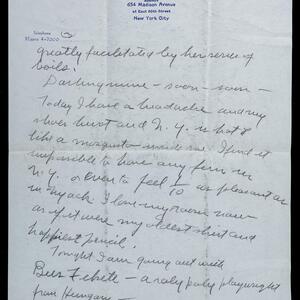 654 Madison Avenue
at East 60th Street
New York City
Telephone
4-7200
greatly facilitated by her series of
boils.
Darling mine — soon — soon —
Today I have a headache and my
shoes hurt and N.Y. is hot &
like a mosquito inside me. I find it
impossible to have any fun in
N.Y. or even to feel 1/10 as pleasant as
in Nyack. I love my room now
as if it were my oldest shirt and
happiest pencil.
Tonight I am going out with
Bus Fekete — a roly poly playwright
from Hungary —